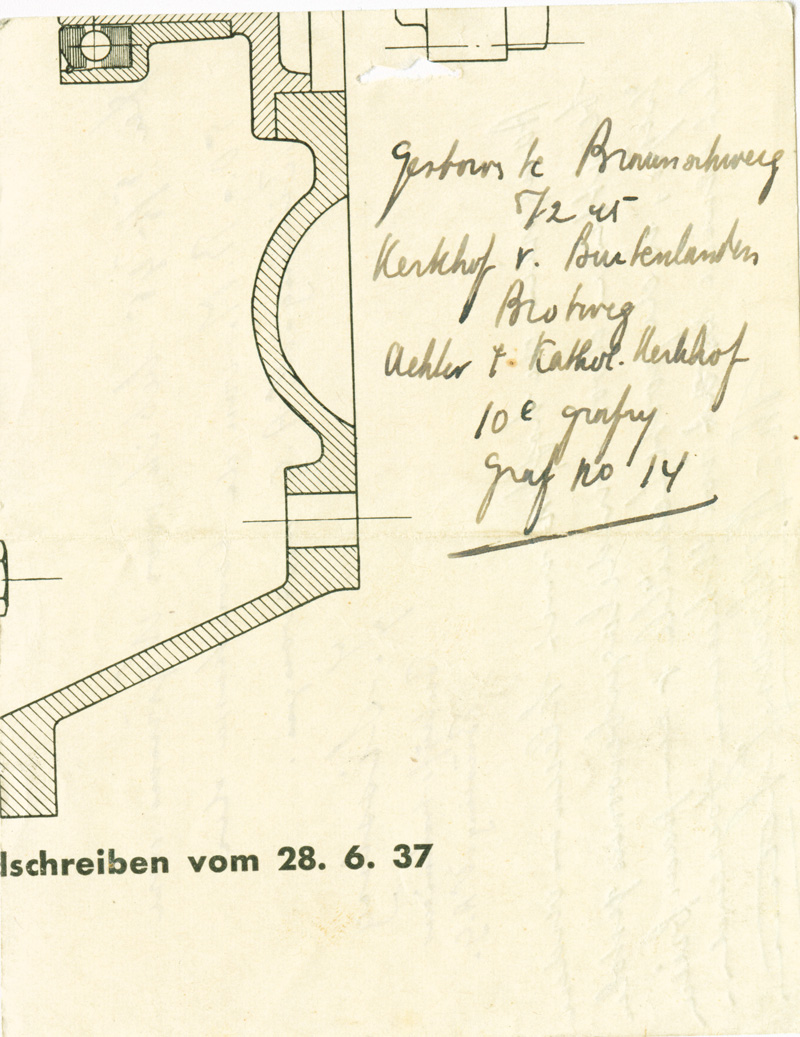 Gestorven te Braunschweig
5/2 45
Kerkhof v. Buitenlanders
Brotweg
Achter 't Kathol. Kerkhof
10e grafry
Graf no 14
dschreiben vom 28. 6. 37